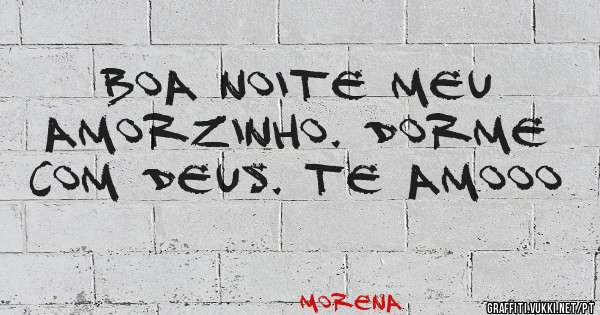 BOA NOITE MEU
AMORZINHO. DORME
COM DEUS. TE AMOOO
MORENA
GRAFFITI.VUKKI.NET/PT